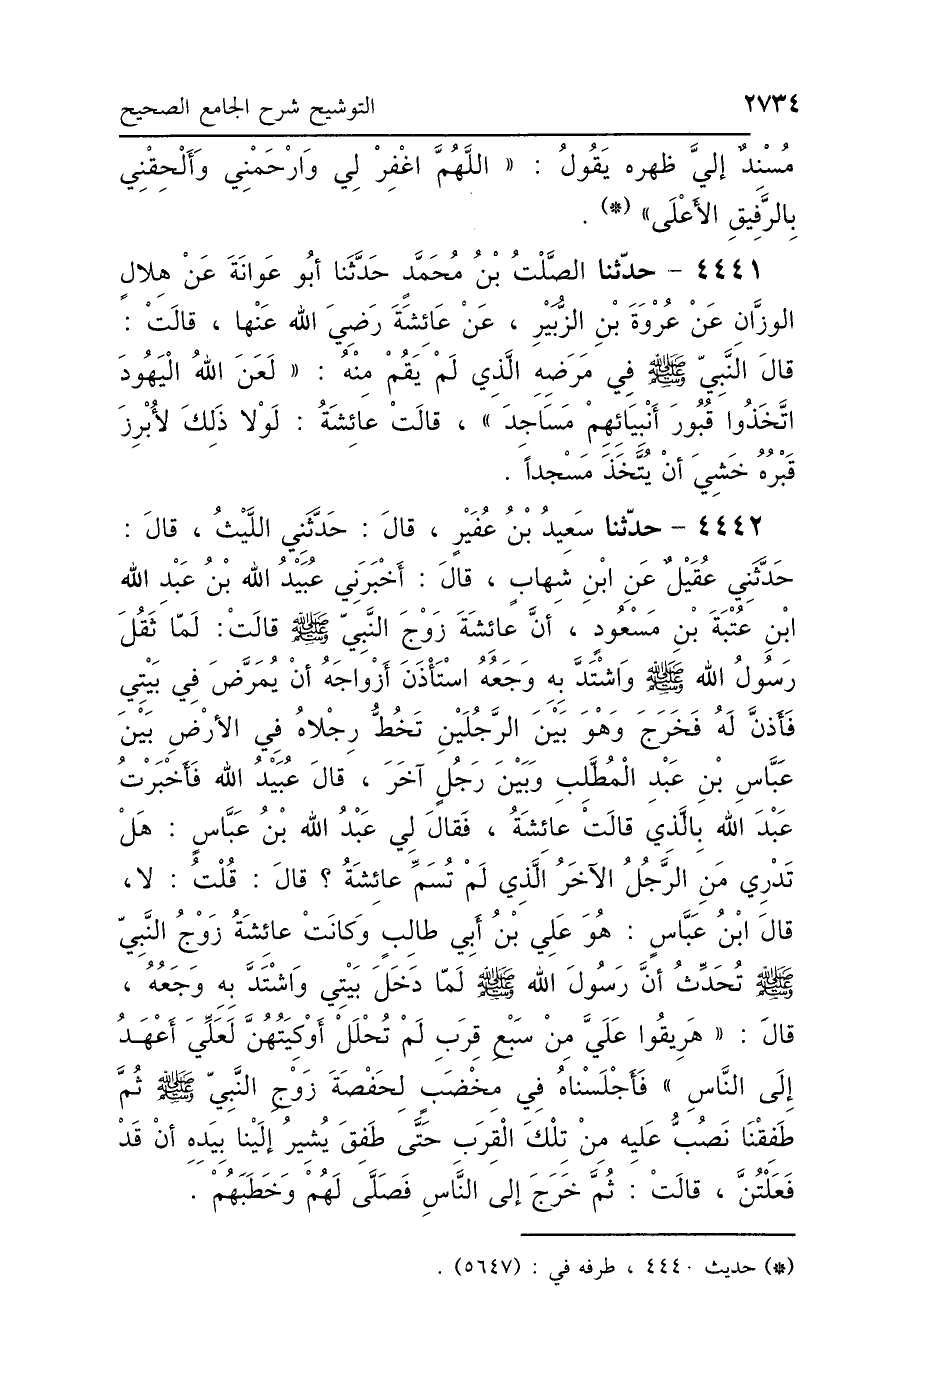 ٢٧٣٤ التوشيح شرح الجامع الصحيح
مُسْنِدٌ إليَّ ظهره يَقُولُ : « اللَّهُمَّ اغْفِرْ لِي وَارْحَمْنِي وَأَلْحِقْنِي
بِالرَّفِيقِ الأَعْلَى» (*) .
٤٤٤١ - حدّثنا الصَّلْتُ بْنُ مُحَمَّدٍ حَدَّثَنا أبُو عَوانَةَ عَنْ هِلالٍ
الوزَّانِ عَنْ عُرْوَةَ بْنِ الزُّبَيْرِ ، عَنْ عَائِشَةَ رَضِيَ الله عَنْها ، قالَتْ :
قالَ النَّبِيّ ﷺ فِي مَرَضِهِ الَّذِي لَمْ يَقُمْ مِنْهُ : « لَعَنَ اللهُ الْيَهُودَ
اتَّخَذُوا قُبُورَ أَنْبِيَائِهِمْ مَسَاجِدَ » ، قالَتْ عائِشَةُ : لَوْلا ذَلِكَ لأُبْرِزَ
قَبْرُهُ خَشِيَ أنْ يُتَّخَذَ مَسْجداً .
٤٤٤٢ - حدّثنا سَعِيدُ بْنُ عُفَيْرٍ ، قالَ : حَدَّثَنِي اللَّيْثُ ، قالَ :
حَدَّثَنِي عُقَيْلٌ عَنِ ابْنِ شِهابٍ ، قالَ : أَخْبَرَنِي عُبَيْدُ الله بْنُ عَبْدِ الله
ابْنِ عُتْبَةَ بْنِ مَسْعُودٍ ، أنَّ عائِشَةَ زَوْجَ النَّبِيّ ﷺ قالَت: لَمّا ثَقُلَ
رَسُولُ الله ﷺ وَاشْتَدَّ بِهِ وَجَعُهُ اسْتَأْذَنَ أزْواجَهُ أنْ يُمَرَّضَ فِي بَيْتِي
فَأذِنَّ لَهُ فَخَرَجَ وَهْوَ بَيْنَ الرَّجُلَيْنِ تَخُطُّ رِجْلاهُ فِي الأرْضِ بَيْنَ
عَبَّاسِ بْنِ عَبْدِ الْمُطَّلِبِ وَبَيْنَ رَجُلٍ آخَرَ ، قالَ عُبَيْدُ الله فَأَخْبَرْتُ
عَبْدَ الله بِالَّذِي قالَتْ عائِشَةُ ، فَقالَ لِي عَبْدُ الله بْنُ عَبَّاسٍ : هَلْ
تَدْرِي مَنِ الرَّجُلُ الآخَرُ الَّذِي لَمْ تُسَمِّ عائِشَةُ ؟ قالَ : قُلْتُ : لا،
قالَ ابْنُ عَبَّاسٍ : هُوَ عَلِي بْنُ أَبِي طالِبٍ وَكانَتْ عائِشَةُ زَوْجُ النَّبِيّ
ﷺ تُحَدِّثُ أنَّ رَسُولَ الله ﷺ لَمّا دَخَلَ بَيْتِي وَاشْتَدَّ بِهِ وَجَعُهُ ،
قالَ : « هَرِيقُوا عَلَيَّ مِنْ سَبْعِ قِرَبٍ لَمْ تُحْلَلْ أَوْكِيَتُهُنَّ لَعَلِّيَ أَعْهَدُ
إِلَى النَّاسِ » فَأَجْلَسْناهُ فِي مِخْضَبٍ لِحَفْصَةَ زَوْجِ النَّبِيّ ﷺ ثُمَّ
طَفِقْنَا نَصُبُّ عَلَيهِ مِنْ تِلْكَ الْقِرَبِ حَتَّى طَفِقَ يُشِيرُ إلَيْنا بِيَدِهِ أنْ قَدْ
فَعَلْتُنَّ ، قالَتْ : ثُمَّ خَرَجَ إلى النَّاسِ فَصَلَّى لَهُمْ وَخَطَبَهُمْ .
(*) حديث ٤٤٤٠ ، طرفه في : (٥٦٤٧) .